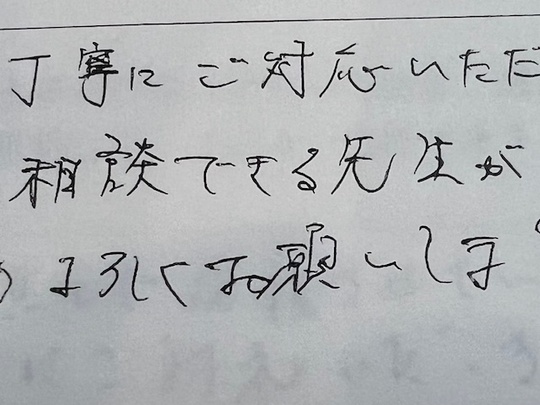 丁寧にご対応いただ
相談できる先生が
よろしくお願いします